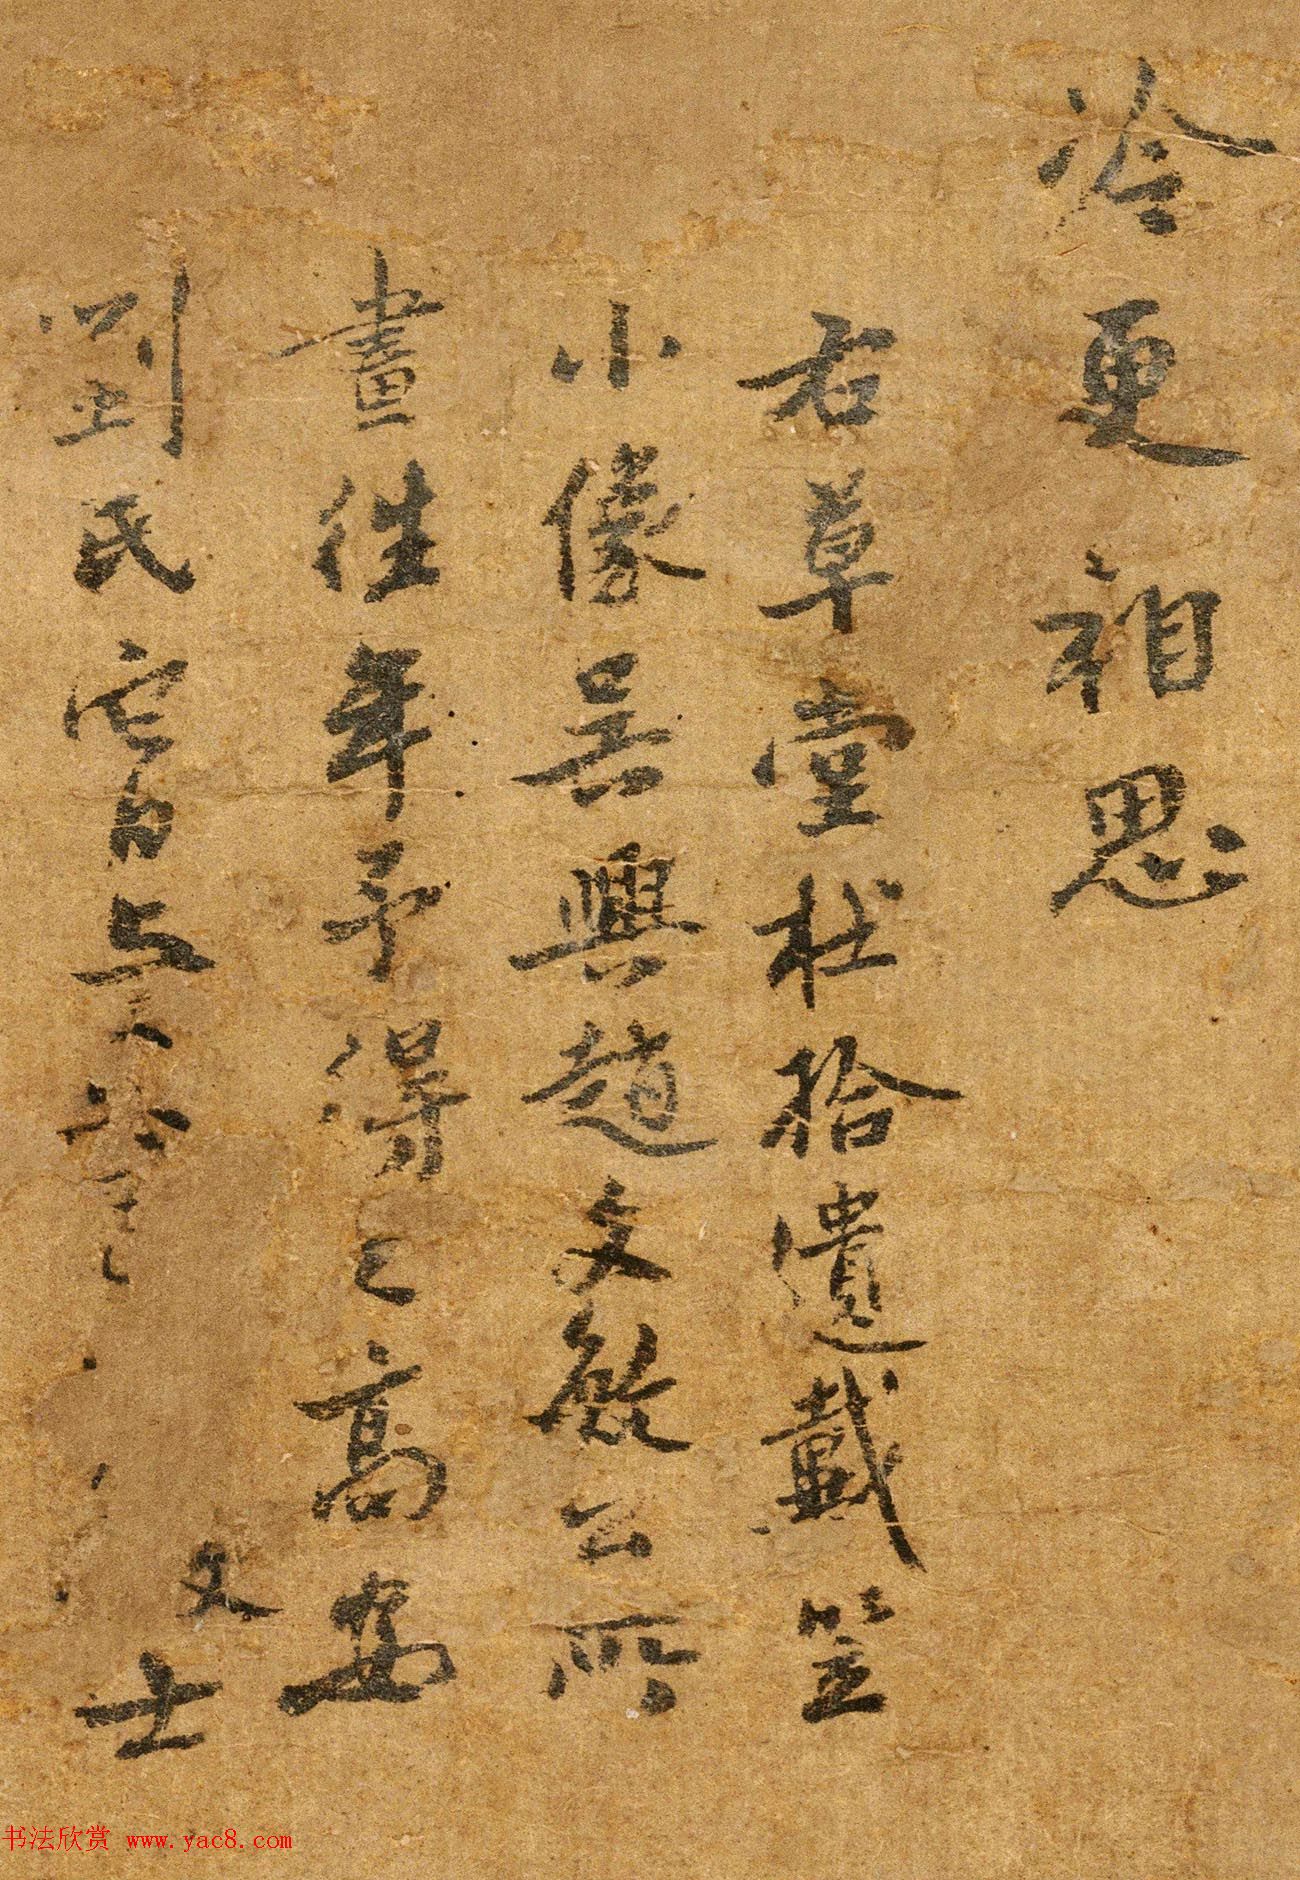 冷更相思
右草堂杜拾遺戴笠
小像吳興趙文敏公所
畫往年予得之高安
劉氏
文士
书法欣赏 www.yac8.com